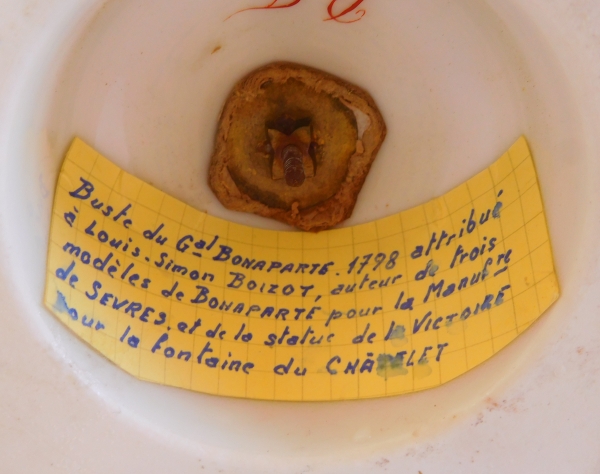 Buste du Gal BONAPARTE. 1798 attribué
à Louis-Simon BOIZOT, auteur de trois
modèles de BONAPARTE pour la Manufre
de SEVRES. et de la statue de la VICTOIRE
pour la fontaine du CHÂTELET